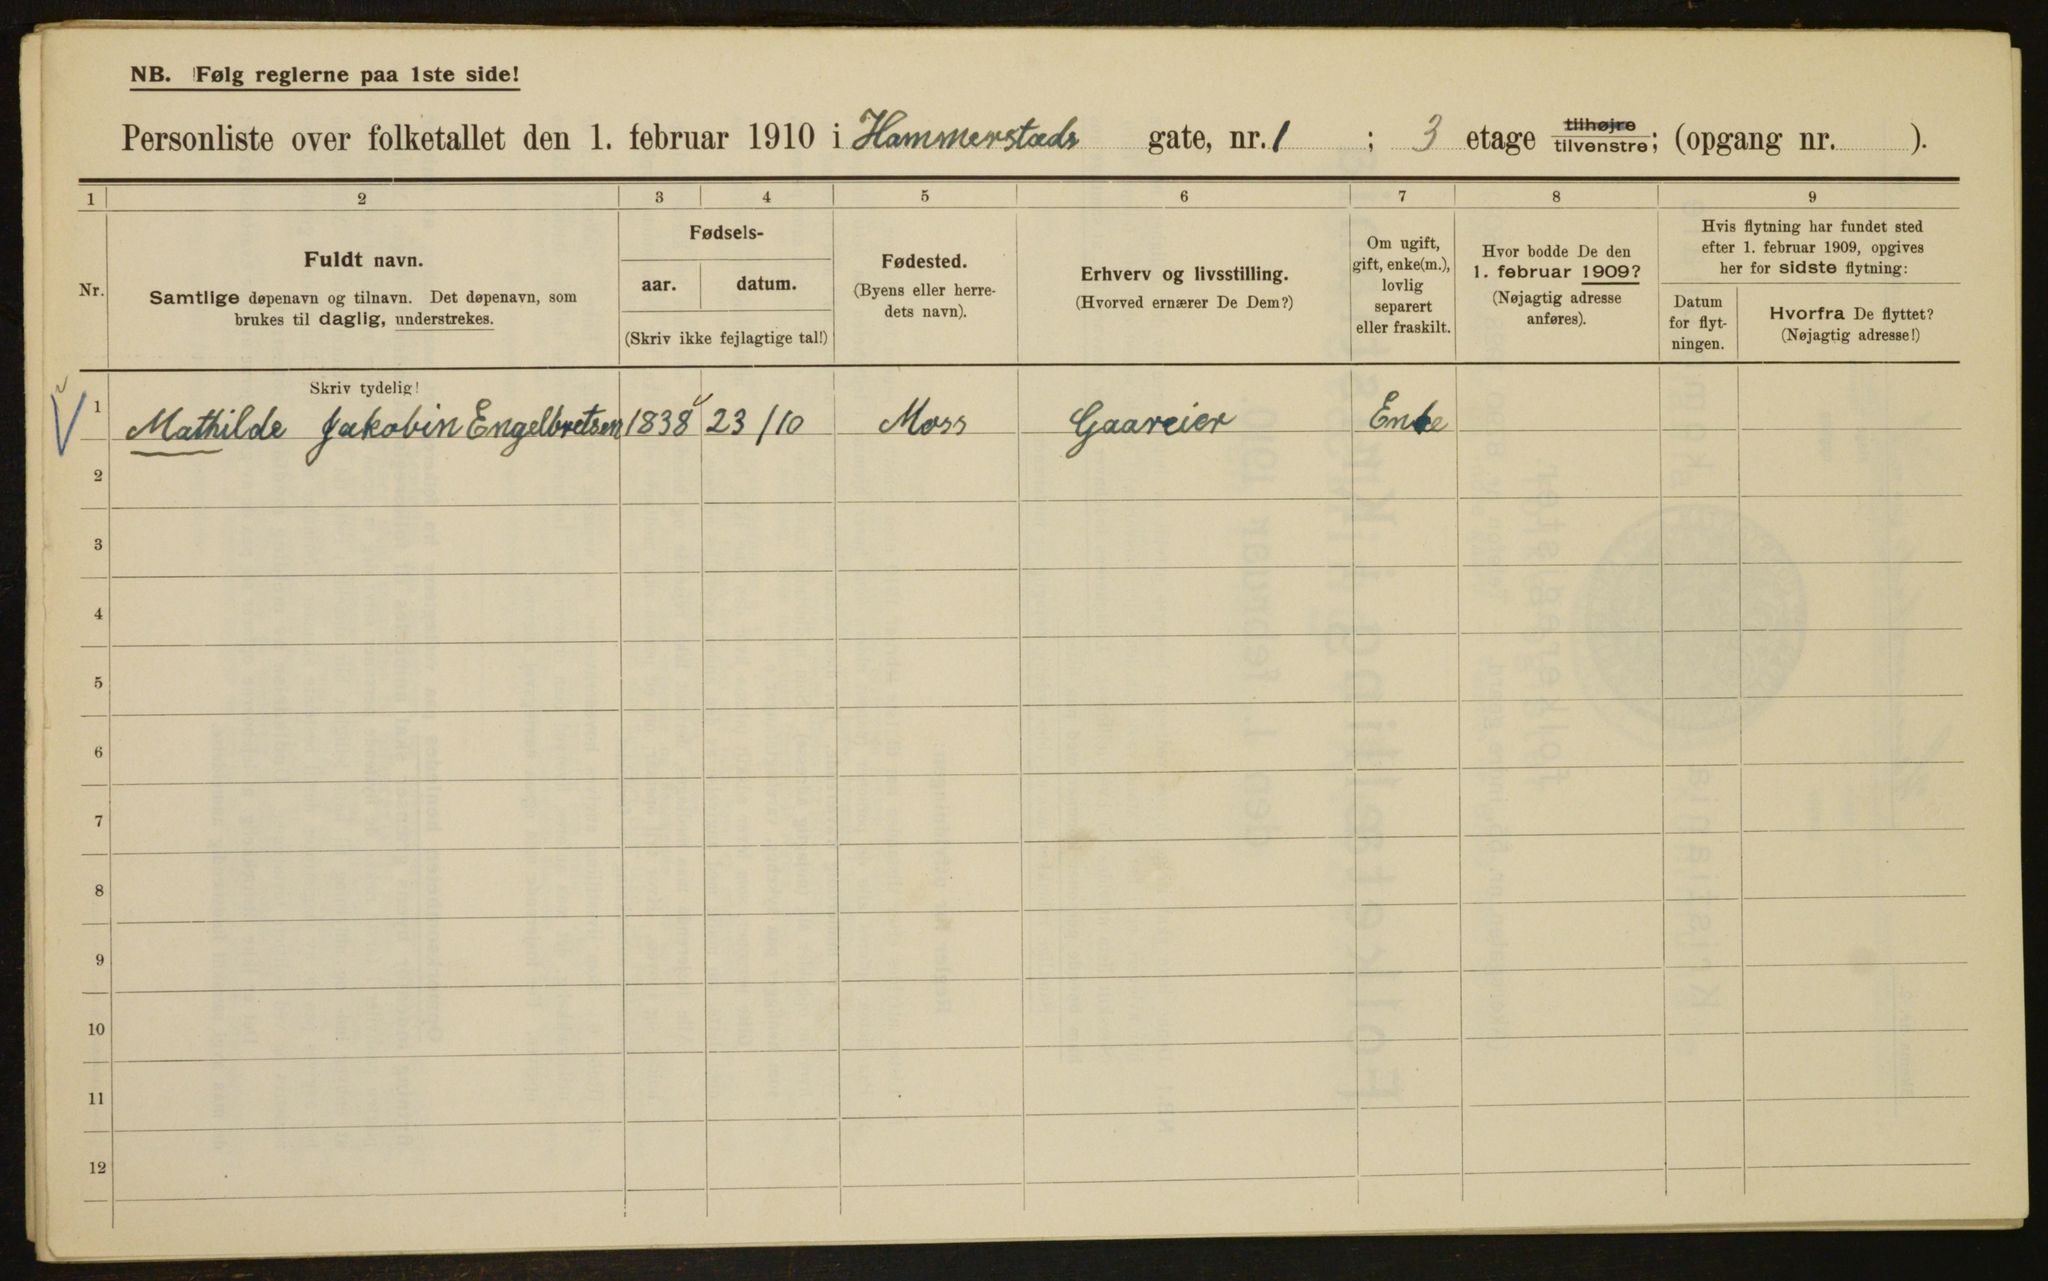 NB. Følg reglerne paa 1ste side!
Personliste over folketallet den 1. februar 1910 i Hammerstads gate, nr. 1 ; 3 etage tilhøjre tilvenstre; (opgang nr. ).
1 2 3 4 5 6 7 8 9
Nr.
Fuldt navn.
Samtlige døpenavn og tilnavn. Det døpenavn, som
brukes til daglig, understrekes.
Fødsels-
aar. datum.
(Skriv ikke fejlagtige tal!)
Fødested.
(Byens eller herre-
dets navn).
Erhverv og livsstilling.
(Hvorved ernærer De Dem?)
Om ugift,
gift, enke(m.),
lovlig
separert
eller fraskilt.
Hvor bodde De den
1. februar 1909?
(Nøjagtig adresse
anføres).
Hvis flytning har fundet sted
efter 1. februar 1909, opgives
her for sidste flytning:
Datum
for flyt-
ningen.
Hvorfra De flyttet?
(Nøjagtig adresse!)
Skriv tydelig!
1 Mathilde Jakobin Engelbretsen 1838 23/10 Moss Gaareier Enke
2
3
4
5
6
7
8
9
10
11
12